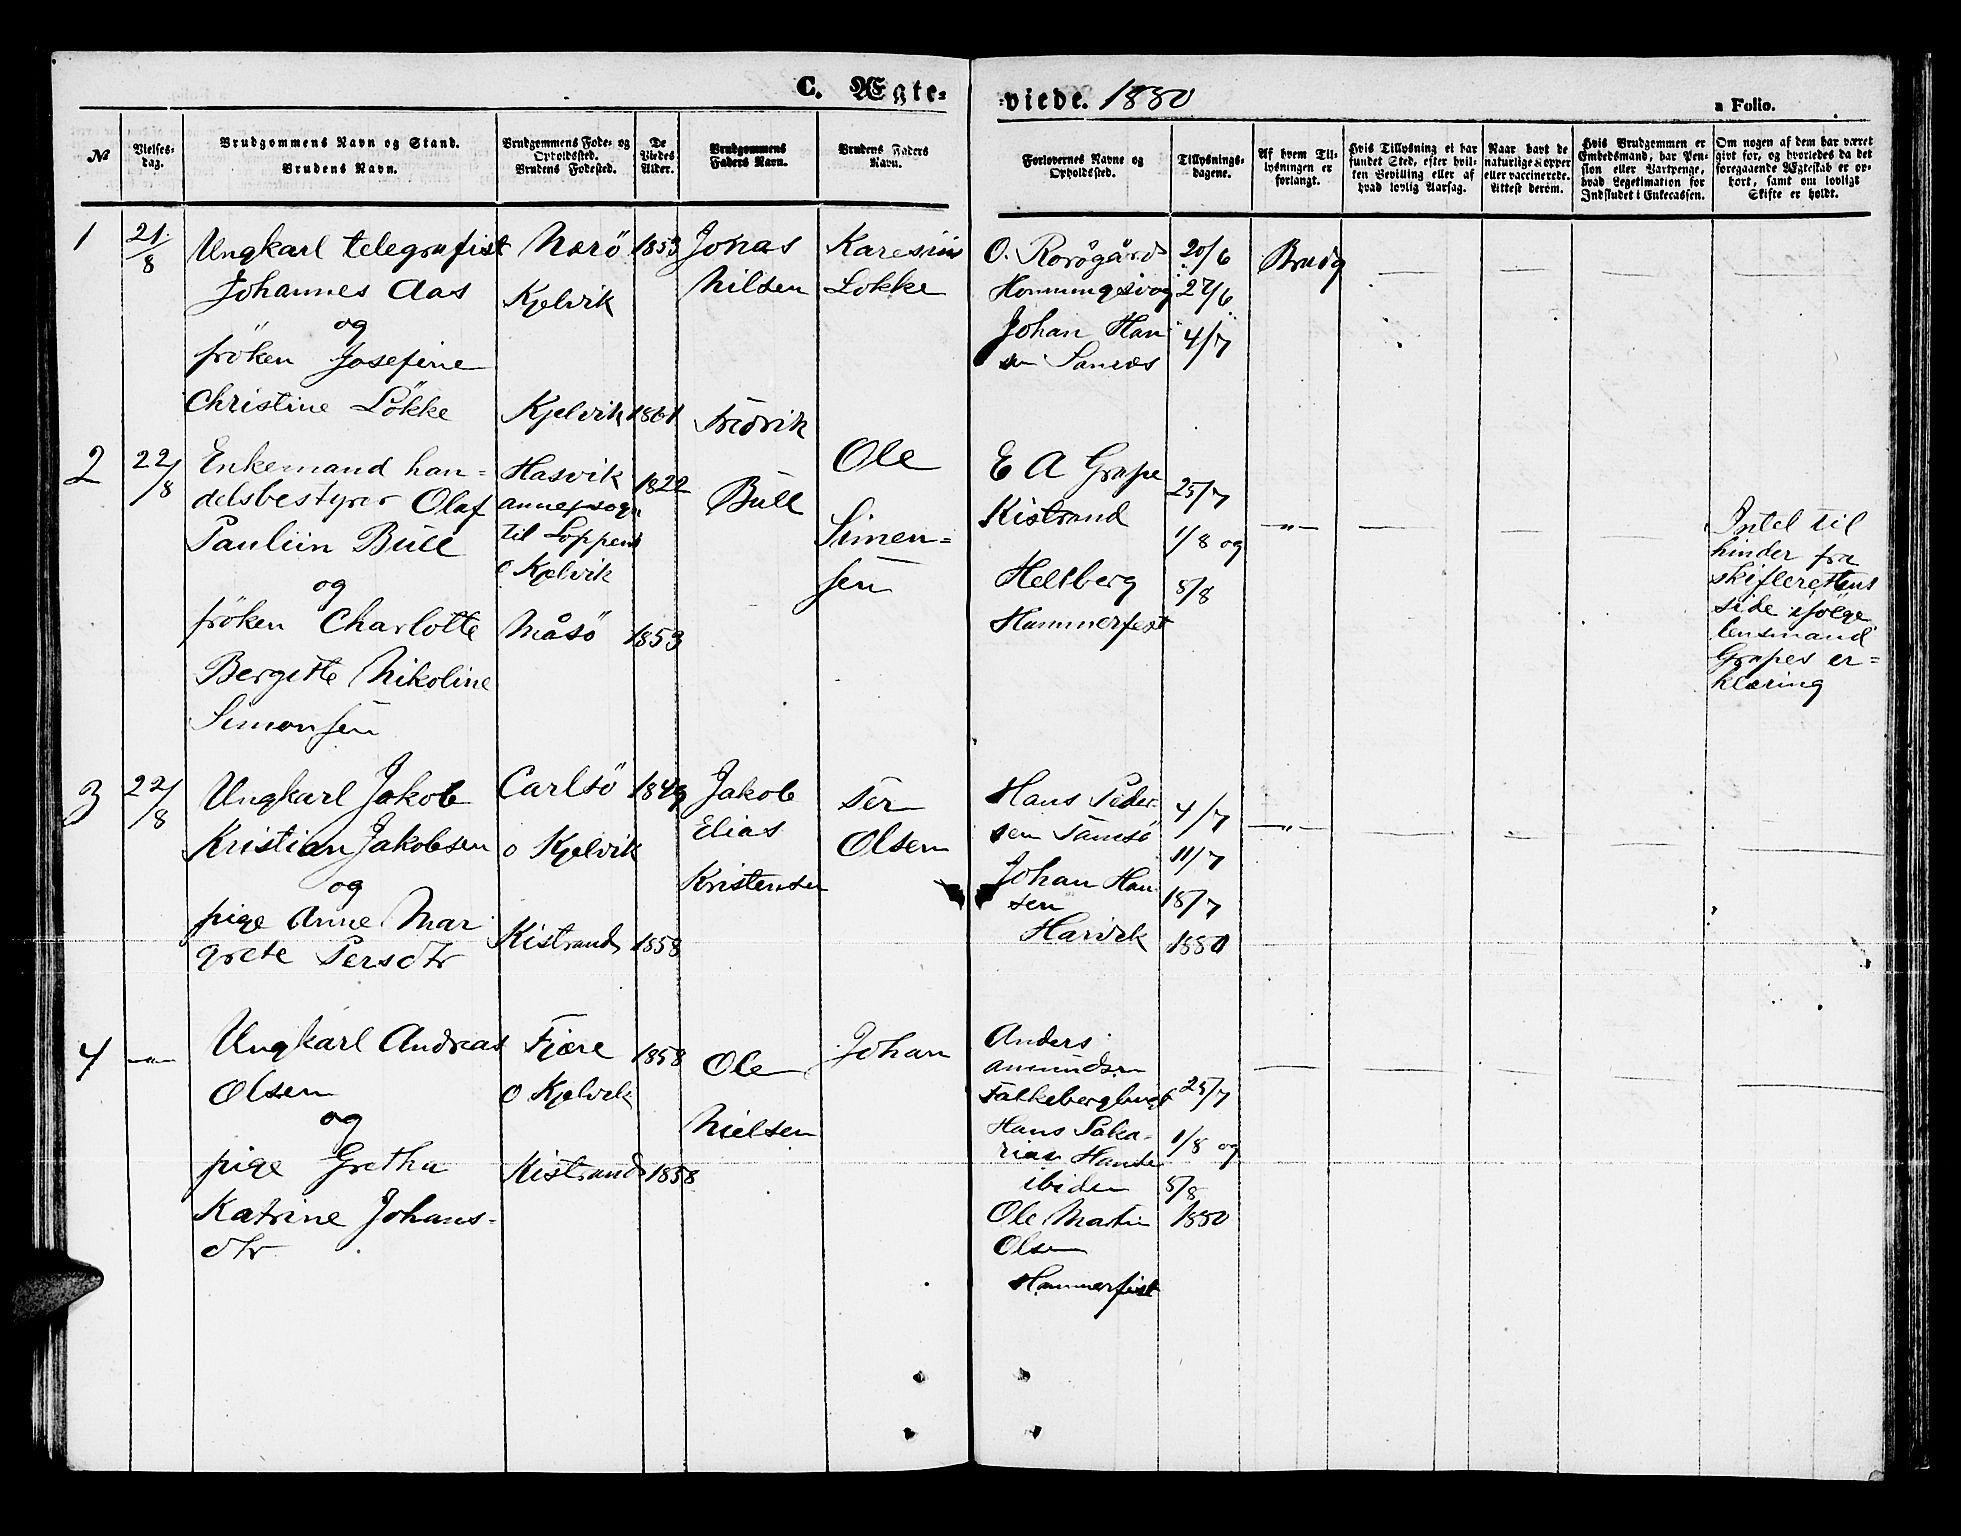 C. Ægte-
viede. 1880
a Folio.
№
Vielses-
dag.
Brudgommens Navn og Stand.
Brudens Navn.
Brudgommens Føde- og
Opholdssted.
Brudens Fødested.
De
Viedes
Alder.
Brudgommens
Faders Navn.
Brudens Faders
Navn.
Forlovernes Navne og
Opholdssted.
Tillysnings-
dagene.
Af hvem Til-
lysningen er
forlangt.
Hvis Tillysning ei har
fundet Sted, efter hvil-
ken Bevilling eller af
hvad lovlig Aarsag.
Naar havt de
naturlige Kopper
eller vaccinerede.
Attest derom.
Hvis Brudgommen er
Embedsmand, har Pen-
sion eller Vartpenge,
hvad Legitimation for
Indskudet i Enkecassen.
Om nogen af dem har været
givt før, og hvorledes da det
foregaaende Ægteskab er op-
hørt, samt om lovligt
Skifte er holdt.
1
21/8
Ungkarl telegrafist
Johannes Aas
og
fröken Josefine
Christine Lökke
Nærö
Kjelvik
Kjelvik
1853
1861
Jonas
Nilsen
Lokke
Honningsvog
Johan Han
sen
20/6
27/6
4/7
Brudg
2
22/8
Enkemand han=
delsbestyrer Olaf
Pauliin Bull
og
fröken Charlotte
Bergitte Nikoline
Simonsen
Hasvik
annexsogn
til Loppens
o Kjelvik
Måsö
1822
1853
Fredrik
Bull
Ole
Simen=
sen
E A Grape
Kistrand
Heltberg
Hammerfest
25/7
1/8 og
8/8
—"—
Intet til
hinder fra
skifterettens
side ifölge
lensmand
Grapes er=
klæring
3
22/8
Ungkarl Jakob
Kristian Jakobsen
og
pige Anne Mar
grete Persdtr
Carlsö
o Kjelvik
Kistrand
1849
1858
Jakob
Elias
Kristensen
Per
Olsen
Hans Peder
sen Tamsö
Johan Han
sen
4/7
11/7
18/7
1880
—"—
4
—"—
Ungkarl Andreas
Olsen
og
pige Gretha
Katrine Johans=
dtr
Fjære
o Kjelvik
Kistrand
1858
1858
Ole
Nielsen
Johan
Anders
Amundsen
Hans Saka=
rias
ibiden
Ole Martin
Olsen
Hammerfest
25/7
1/8 og
8/8
1880